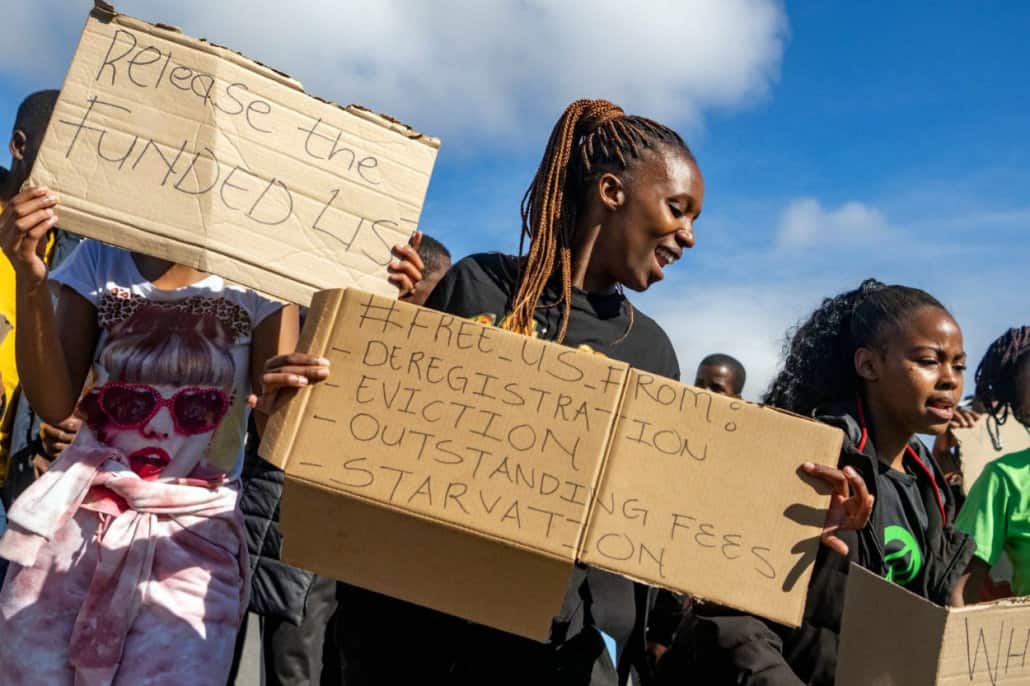 Release the
FUNDED LIS
#FREE_US_FROM:
- DEREGISTRATION
- EVICTION
- OUTSTANDING FEES
- STARVATION
WH